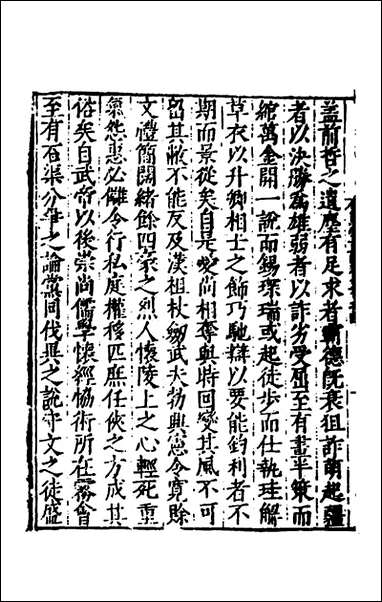 蓋前哲之遺塵有足求者霸德旣衰狙詐萌起彊
者以决勝爲雄弱者以詐劣受屈至有畫半策而
綰萬金開一說而錫琛瑞或起徒步而仕執珪解
草衣以升卿相士之飾巧馳辯以要能釣利者不
期而景從矣自是愛尚相奪與時回變其風不可
留其敝不能反及漢祖杖劒武夫勃興憲令寬賒
文禮簡闊緒餘四豪之烈人懷陵上之心輕死重
氣怨惠必讎令行私庭權移匹庶任俠之方成其
俗矣自武帝以後崇尚儒學懷經協術所在霧會
至有石渠分爭之論黨同伐異之說守文之徒盛